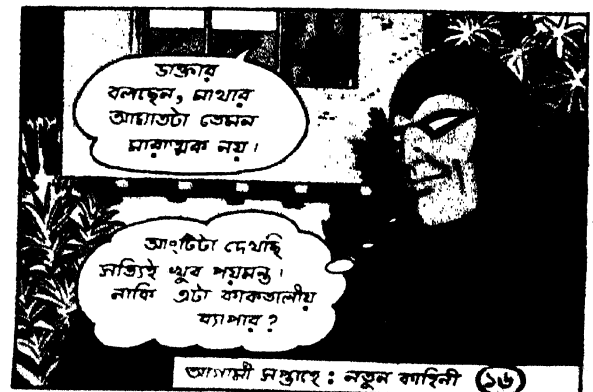 ডাক্তার
বলছেন, মাথার
আঘাতটা তেমন
মারাত্মক নয়।
আংটিটা দেখছি
সত্যিই খুব পয়মন্ত।
নাকি এটা কাকতালীয়
ব্যাপার?
আগামী সপ্তাহে : নতুন কাহিনী ১৬